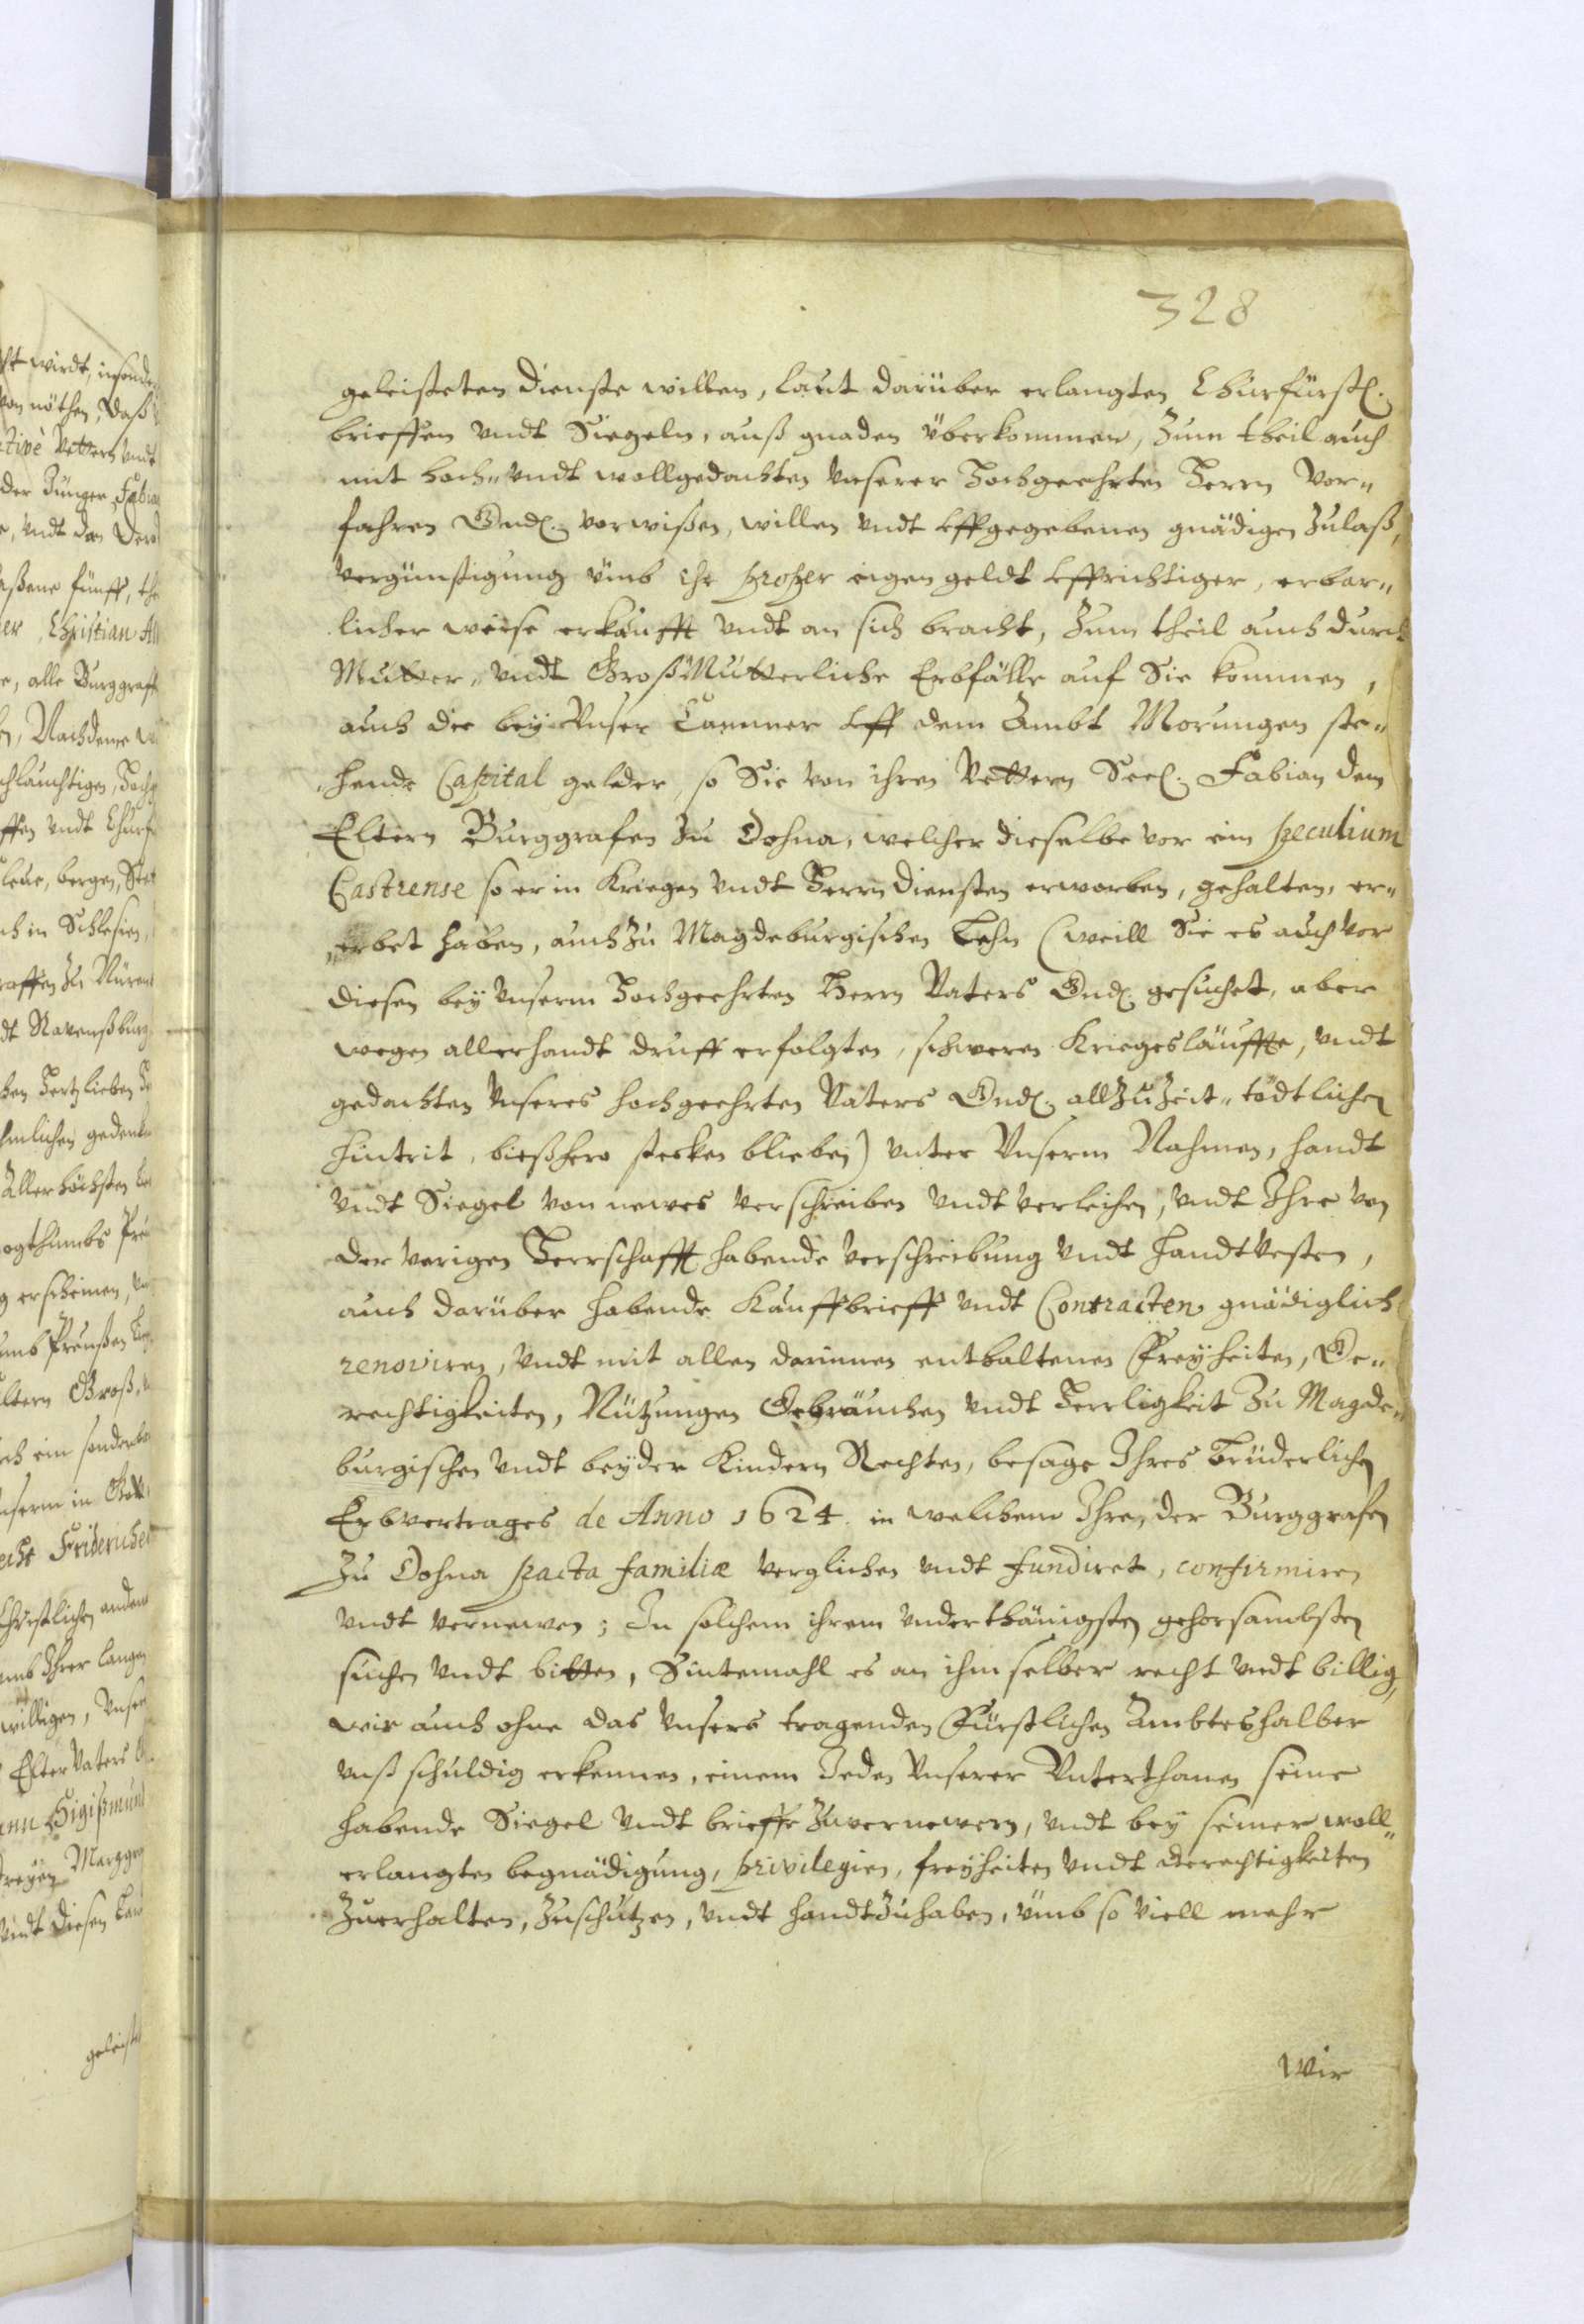 328
geleisteten dienste willen, laut darüber erlangten Churfürstl.
brieffen undt Siegeln, auß gnaden überkommen, Zum theil auch
mit hoch„ undt wollgedachten Unserer Hochgeehrten Herrn Vor„
fahren Gnd. vorwißen, willen undt uffgegebenen gnädigen Zulaß,
Vergünstigung ümb ihr proper eigen geldt uffrichtiger, erbar„
licher weise erkaufft undt an sich bracht, Zum theil auch durch
Mutter„ undt Groß Mutterliche Erbfälle auf Sie kommen,
auch die bey Unser Cammer uff dem Ambt Morungen ste„
„hende Capital gelder, so Sie von ihren Vettern Seel. Fabian dem
Eltern Burggrafen Zu Dohna, welcher dieselbe vor ein peculium
Castrense so er in Kriegen undt Herrn diensten erworben, gehalten, er„
„erbet haben, auch Zu Magdeburgischen Lehn (weill Sie es auch vor
diesen bey Unserm Hochgeehrten Herrn Vaters Gnd. gesuchet, aber
wegen allerhandt druff erfolgten, schweren Kriegesläuffte, undt
gedachten Unseres hochgeehrten Vaters Gnd. allZuZeit„ tödtlichen
hintrit, bießhero stecken blieben) unter Unserm Nahmen, handt
undt Siegel von newes verschreiben undt verleihen, undt Ihre von
der vorigen Herrschafft habende Verschreibung undt handtvesten,
auch darüber habende Kauffbrieff undt Contracten gnädiglich
renoviren, undt mit allen darinnen enthaltenen Freyheiten, Ge„
rechtigkeiten, Nützungen Gebräuchen undt Herrligkeit Zu Magde„
burgischen undt beyder Kindern Rechten, besage Ihres Brüderlichen
Erbvertrages de Anno 1624. in welchem Ihre, der Burggrafen
Zu Dohna pacta familiæ verglichen undt fundiret, confirmiren
undt vernewen; In solchem ihrem underthänigsten gehorsambsten
suchen undt bitten, Sintemahl es an ihm selber recht undt billig,
wir auch ohne das Unsers tragenden Fürstlichen Ambteshalber
unß schuldig erkennen, einem Jeden Unserer Unterthanen seine
habende Siegel undt brieffe Zuvernewern, undt bey seiner woll„
erlangten begnädigung, privilegien, freyheiten undt Gerechtigkeiten
Zuerhalten, Zuschutzen, undt handtZuhaben, ümb so viell mehr
Wir